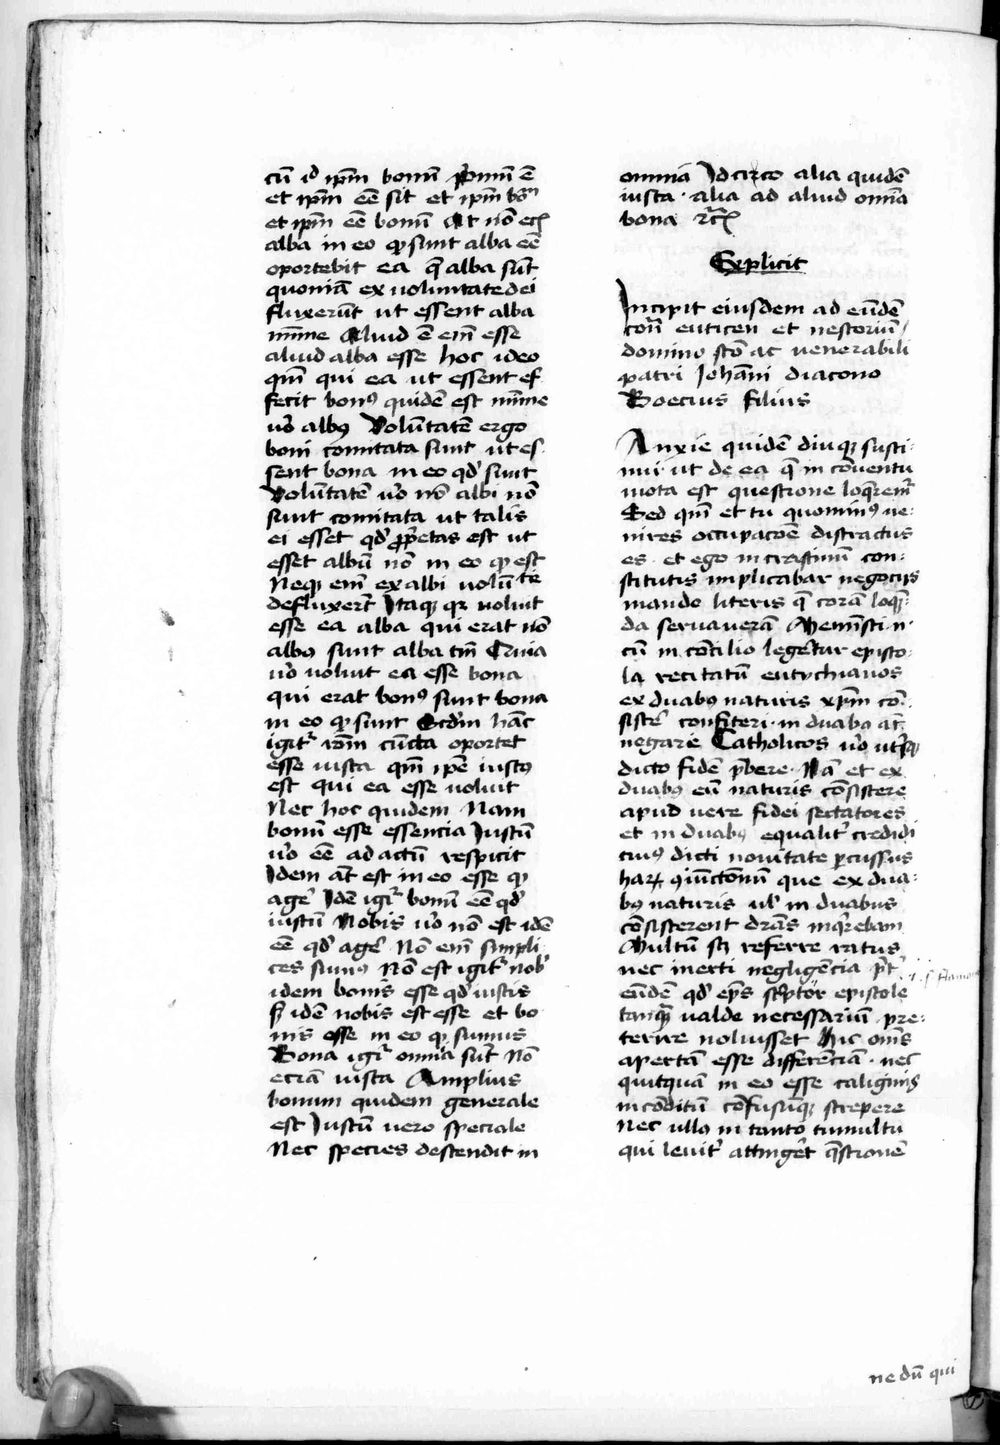 cū id ip̄m bonū p̄mū ē
et ip̄m eē sit et ip̄m bōn
et ip̄m eē bonū At nō ec̄
alba in eo qͥ sunt alba eē
oportebit ea q̄ alba sūt
quoniā ex uoluntate dei
fluxerūt ut essent alba
mīme Aliud ē em̄ esse
aliud alba esse hoc ideo
qm̄ qui ea ut essent ef
fecit bonꝰ quidē est mīme
uͦo albꝰ Volūtatē ergo
boni comitata sunt ut es
sent bona in eo qdͥ sunt
Volūtatē uͦo nō albi nō
sunt comitata ut talis
ei esset qdͥ ꝓp̄etas est ut
esset albū nō in eo qͥ est
Neqꝫ em̄ ex albi uolūte
defluxert̄ Itaqꝫ qꝛ uoluit
esse ea alba qui erat nō
albꝰ sunt alba tm̄ Quia
uͦo uoluit ea esse bona
qui erat bonꝰ sunt bona
in eo qͥ sunt Scd̄m hāc
igit᷑ rōm cūcta oportet
esse iusta qm̄ ip̄e iustꝰ
est qui ea esse uoluit
Nec hoc quidem Nam
bonū esse essencia Iustū
uͦo eē ad actū respicit
Idem āt est in eo esse qͥ
age᷑ Idē igr᷑ bonū eē qdͥ
iustū Nobis uͦo nō est idē
eē qdͥ age᷑ Nō em̄ simpli
ces sumꝰ Nō est igit᷑ nob᷑
idem bonis esse qdͥ iustis
sꝫ idē nobis est esse et bo
nis esse in eo qͥ sumus
Bona igr᷑ omnia sūt nō
eciā iusta Amplius
bonum quidem generale
est Iustū uero speciale
Nec species descendit in
omnia Idcirco alia quidē
iusta · alia ad aliud omīa
bona ⁊c̄
Explicit
Incipit eiusdem ad eūdē
cōn̄ euticen et nestoriū
domino sc̄o ac uenerabili
patri Iohāni diacono
Boecius filius
Anxie quidē diuqꝫ susti-
nui ut de ea q̄ in cōuentu
mota est questione loq̄rem᷑
Sed qm̄ et tu quominꝰ ue-
nires occupacōe distractus
es · et ego in crastinū con-
stitutis implicabar negocijs
mando literis q̄ corā loqͣn-
da seruauerā Meministi n·
cū in cōcilio legēt᷑ur episto-
la recitatū eutychianos
ex duabꝰ naturis xp̄m cō-
siste᷑ confiteri · in duabꝰ āt
negare Catholicos uͦo ut̄qꝫ
dicto fidē p̄bere · Nā et ex
duabꝰ eū naturis cōsistere
apud uere fidei sectatores
et in duabꝰ equalit᷑ credidi
cuiꝰ dicti nouitate ꝑcussus
haꝝ ꝯiūctionū que ex dua-
bꝰ naturis ul᷑ in duabus
cōsisterent dr̄as inq̄rebam
Multū scꝫ referre ratus
nec inerti negligēcia p̄t᷑
eūdē qdͥ ep̄s sc̄ptor epistole
tanqͣ ualde necessariū pre-
terire noluisset Hic om̄s
apertā esse differēciā · nec
quitquā in eo esse caliginis
incōditū cōfusūqꝫ strepere
nec ullꝰ in tanto tumultu
qui leuit᷑ attinge᷑t q̄stionē
ne dū qui